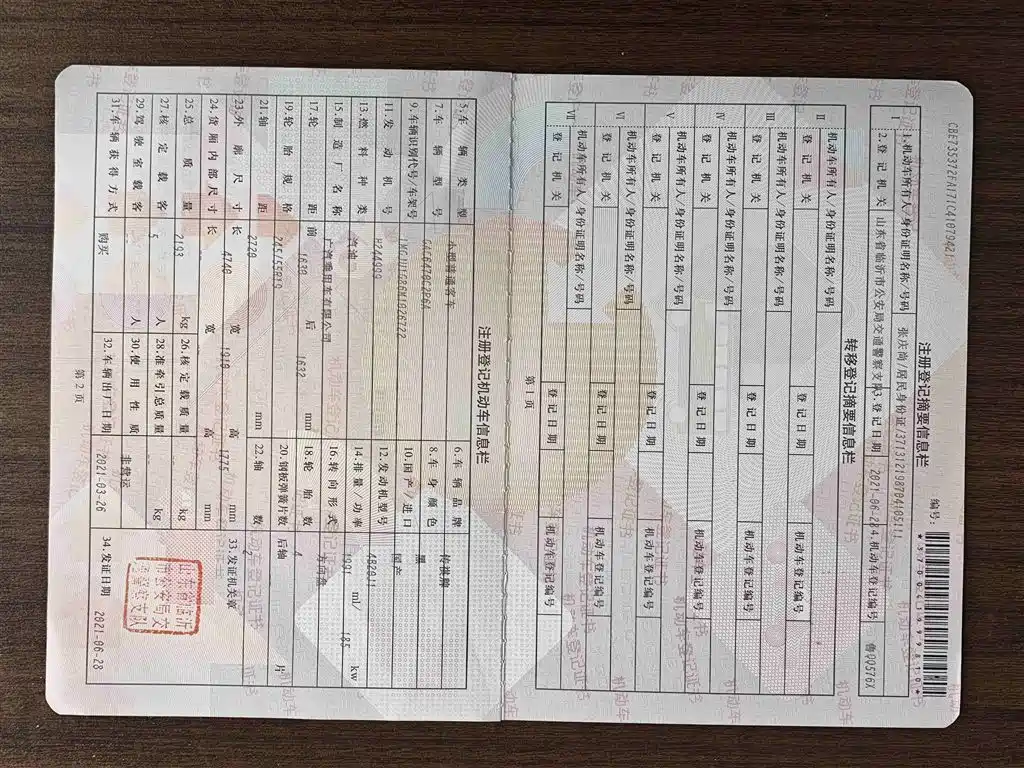 注册登记摘要信息栏
编号:
*370041999410*
I
1.机动车所有人/身份证明名称/号码
2.登记机关
山东省临沂市公安局交通警察支队
3.登记日期
2021-06-28
4.机动车登记编号
鲁QQ576X
转移登记摘要信息栏
II
机动车所有人/身份证明名称/号码
登记机关
登记日期
机动车登记编号
III
机动车所有人/身份证明名称/号码
登记机关
登记日期
机动车登记编号
IV
机动车所有人/身份证明名称/号码
登记机关
登记日期
机动车登记编号
V
机动车所有人/身份证明名称/号码
登记机关
登记日期
机动车登记编号
VI
机动车所有人/身份证明名称/号码
登记机关
登记日期
机动车登记编号
VII
机动车所有人/身份证明名称/号码
登记机关
登记日期
机动车登记编号
第 1 页
注册登记机动车信息栏
5.车辆类型 小型普通客车 6.车辆品牌 传祺牌
7.车辆型号 8.车身颜色 黑
9.车辆识别代号/车架号 10.国产/进口 国产
11.发动机号 12.发动机型号 4B20J1
13.燃料种类 汽油 14.排量/功率 1991 ml/ 185 kw
15.制造厂名称 广汽乘用车有限公司 16.转向形式 方向盘
17.轮距 前 1630 后 1632 mm 18.轮胎数 4
19.轮胎规格 235/55R19 20.钢板弹簧片数 后轴 片
21.轴距 2730 mm 22.轴数 2
23.外廓尺寸 长 4740 宽 1910 高 1775 mm 33.发证机关章
24.货厢内部尺寸 长 宽 高 mm
25.总质量 2193 kg 26.核定载质量 kg
27.核定载客 5 人 28.准牵引总质量 kg
29.驾驶室载客 人 30.使用性质 非营运
31.车辆获得方式 购买 32.车辆出厂日期 2021-03-26 34.发证日期 2021-06-28
第 2 页